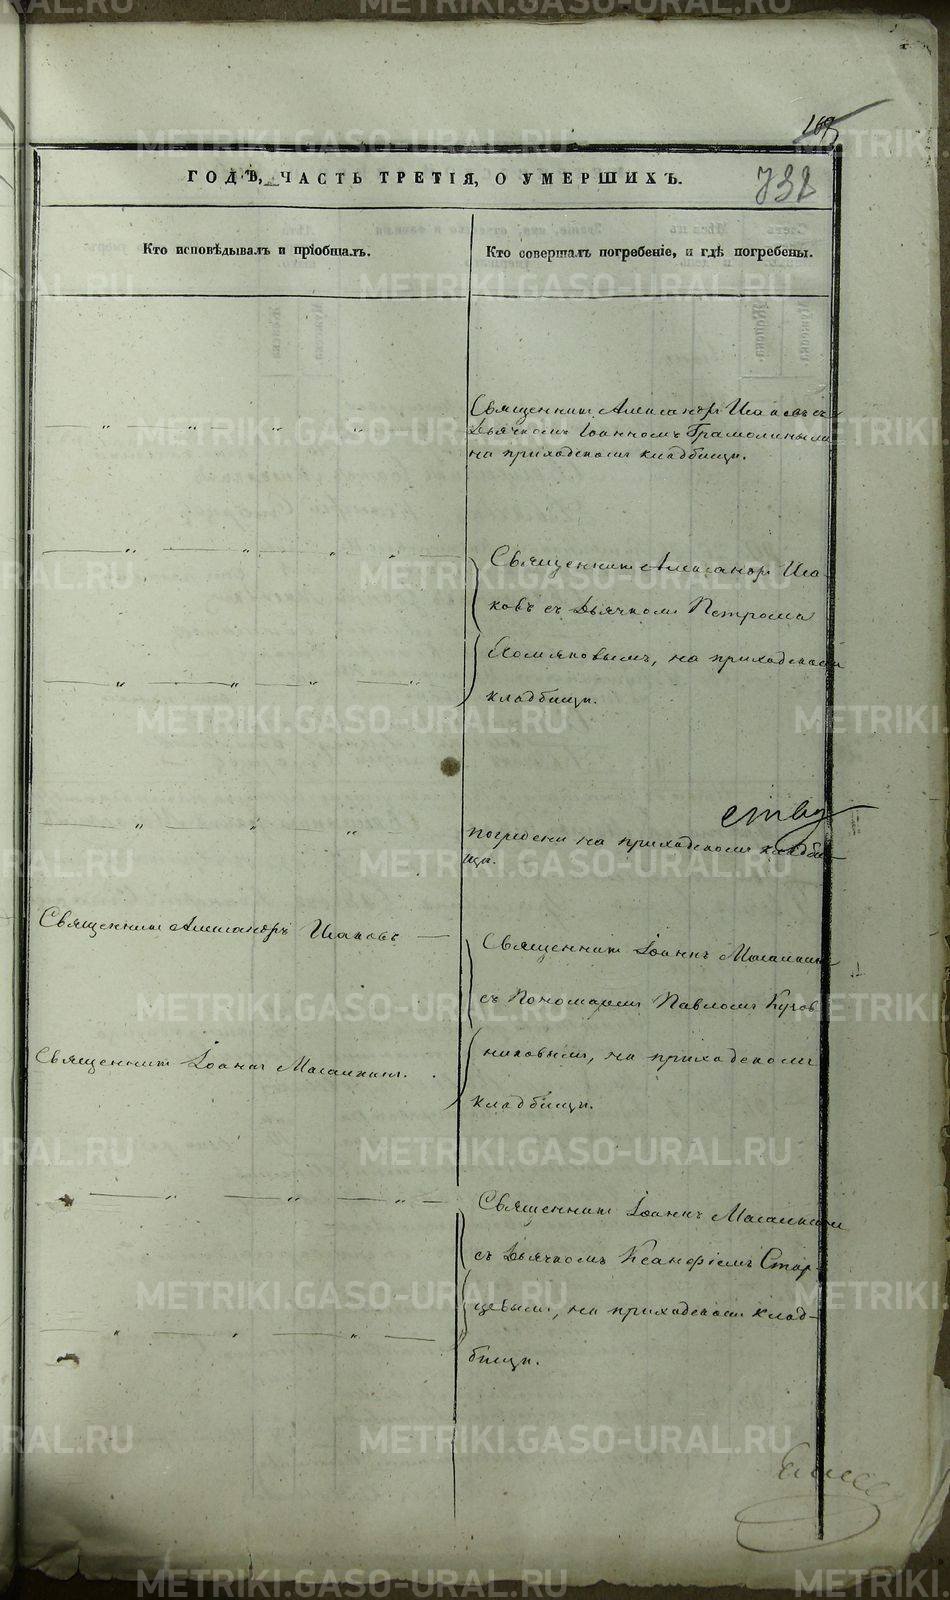 169
ГОДѢ, ЧАСТЬ ТРЕТІЯ, О УМЕРШИХЪ.
732
Кто исповѣдывалъ и пріобщалъ.
Кто совершалъ погребеніе, и гдѣ погребены.
Священникъ Александръ Исаковъ съ
Дьячкомъ Іоанномъ Грамолинымъ
на приходскомъ кладбищѣ.
Священникъ Александръ Иса
ковъ съ Дьячкомъ Петромъ
Хомяковымъ, на приходскомъ
кладбищѣ.
погребены на приходскомъ кладби
щѣ.
Священникъ Александръ Исаковъ
Священникъ Іоаннъ
съ Пономаремъ Павломъ
никовымъ, на приходскомъ
кладбищѣ.
Священникъ Іоаннъ
Священникъ Іоаннъ
съ Дьячкомъ Ксанфіемъ Стар-
цевымъ, на приходскомъ клад-
бищѣ.
METRIKI.GASO-URAL.RU